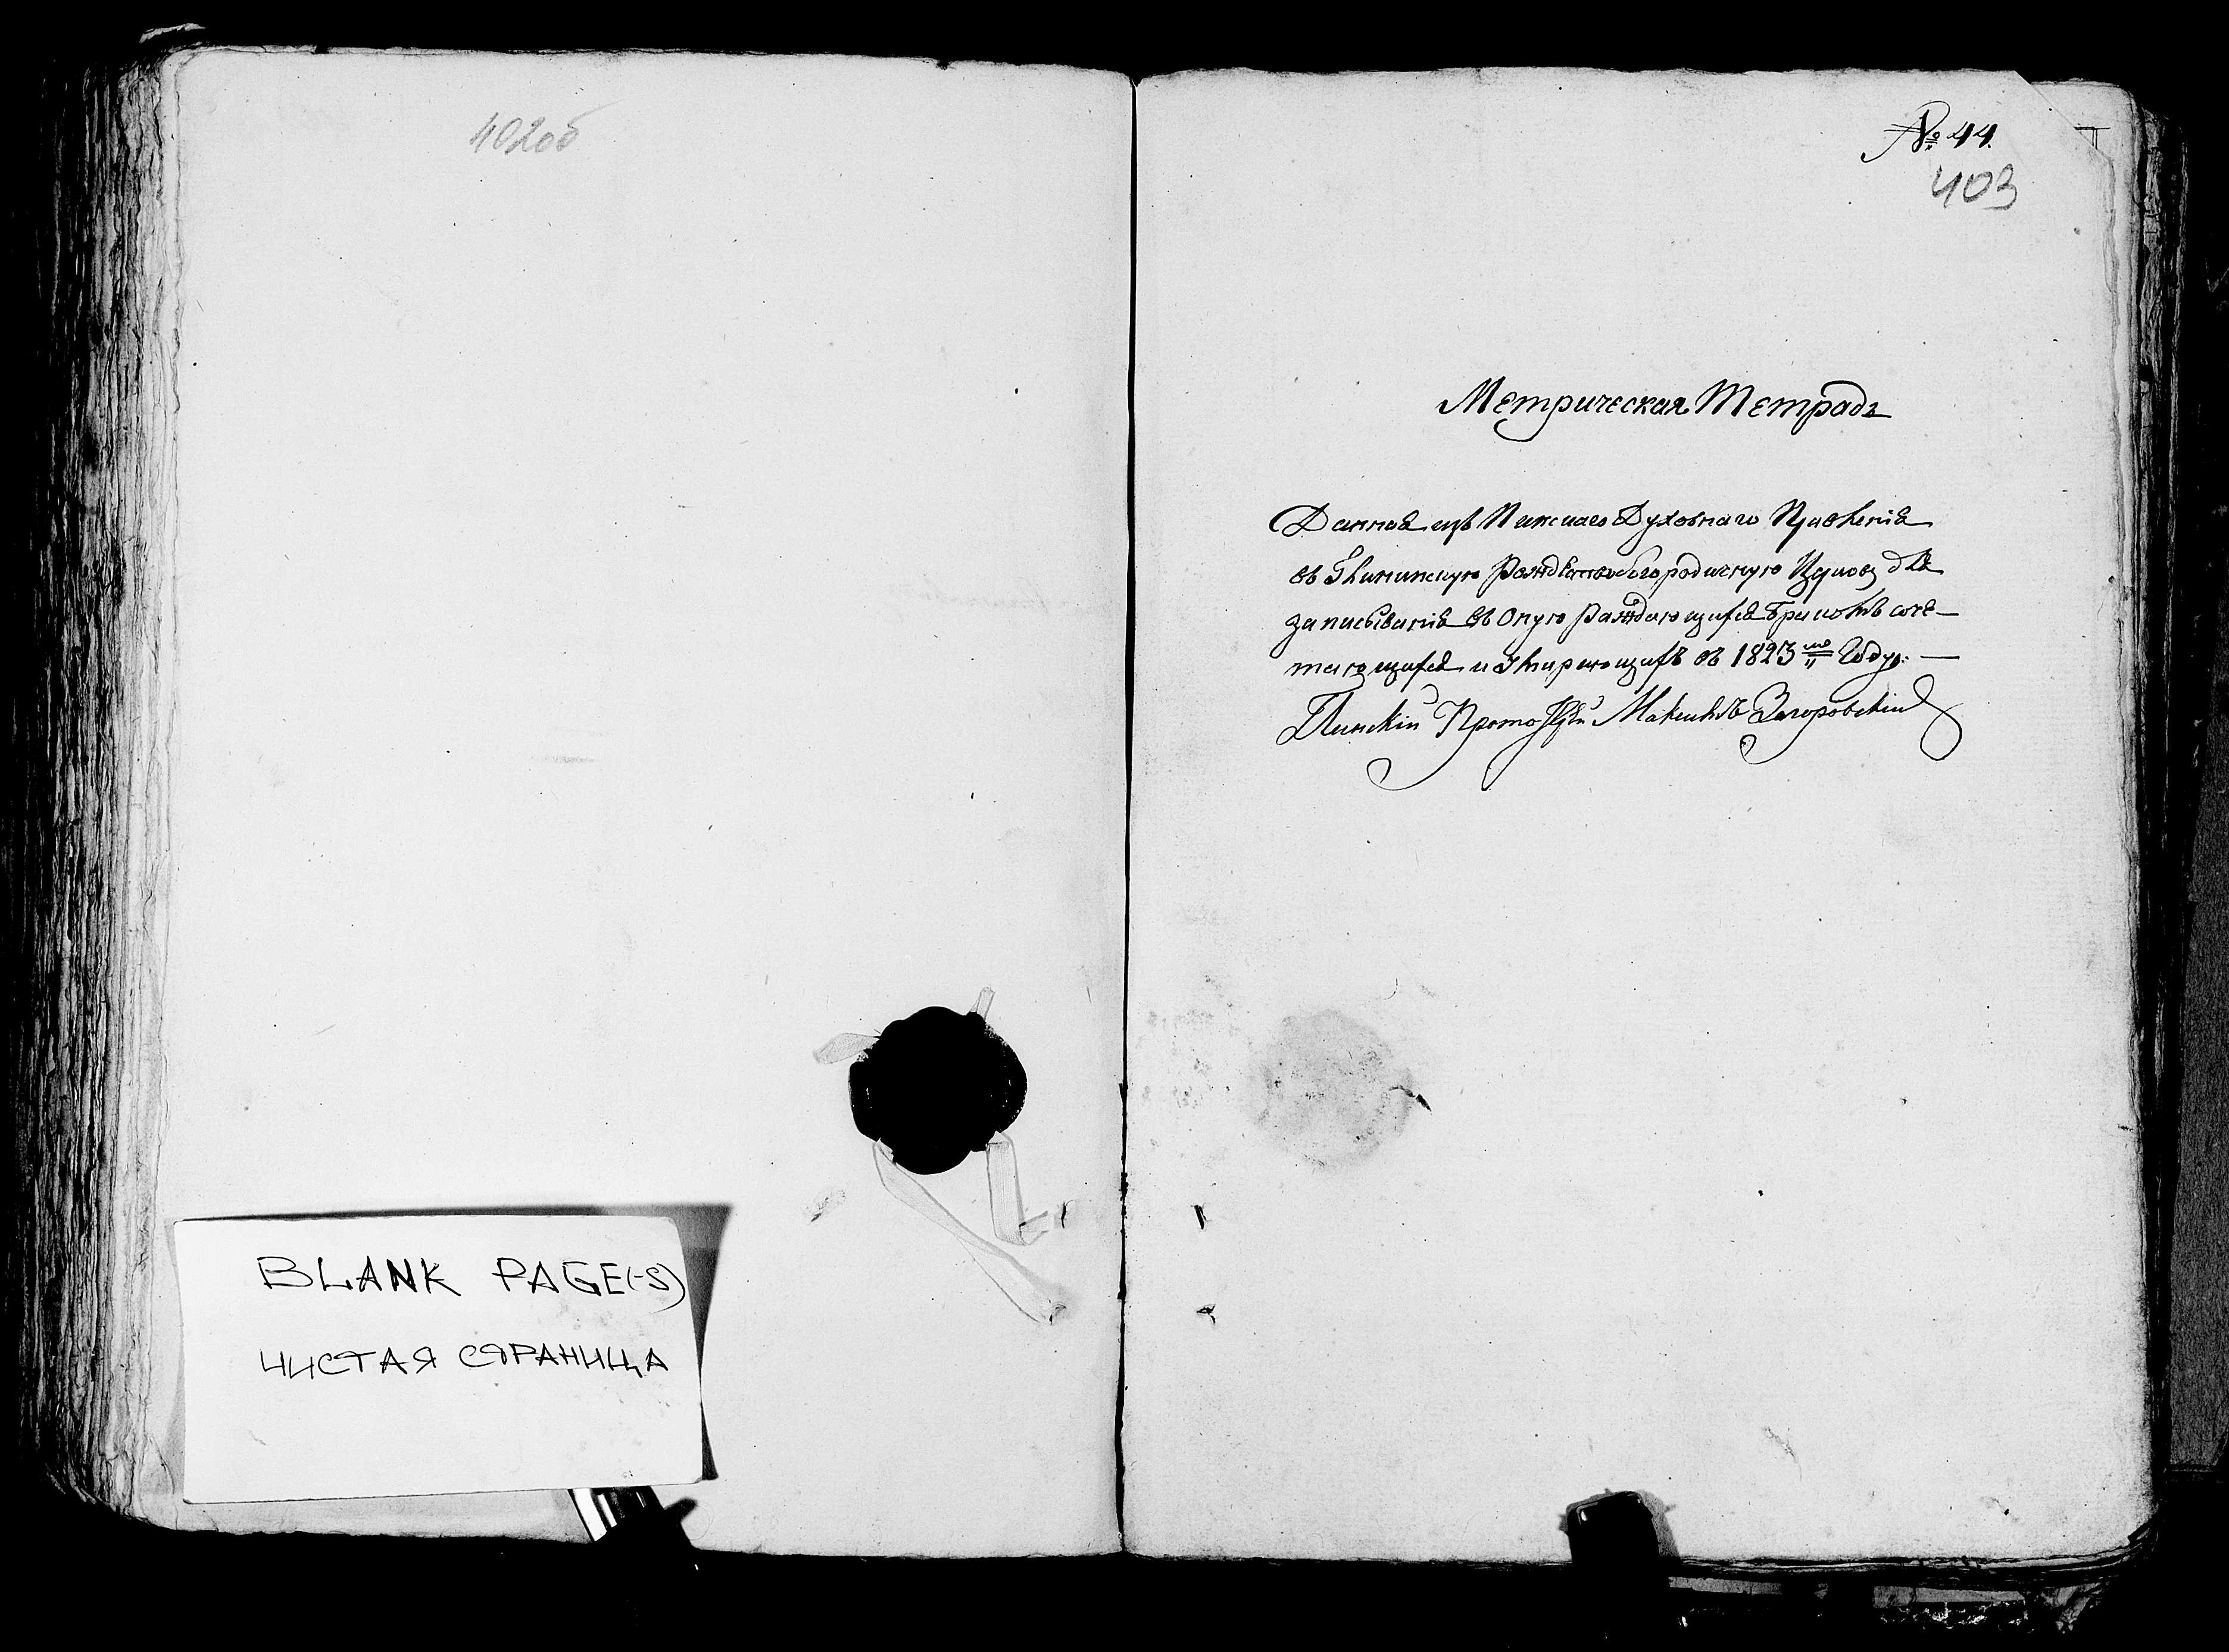 402об
№ 44.
403
Метрическая Тетрадь
Данная изъ Пинскаго Духовнаго Правленія
въ Рождественобогородичную Церковь для
записыванія въ оную раждающихся бракомъ соче-
тающихся и умирающихъ въ 1823мъ Году. —
Пинскій Прото Максимъ Загоровскій
BLANK PAGE(-S)
ЧИСТАЯ СТРАНИЦА